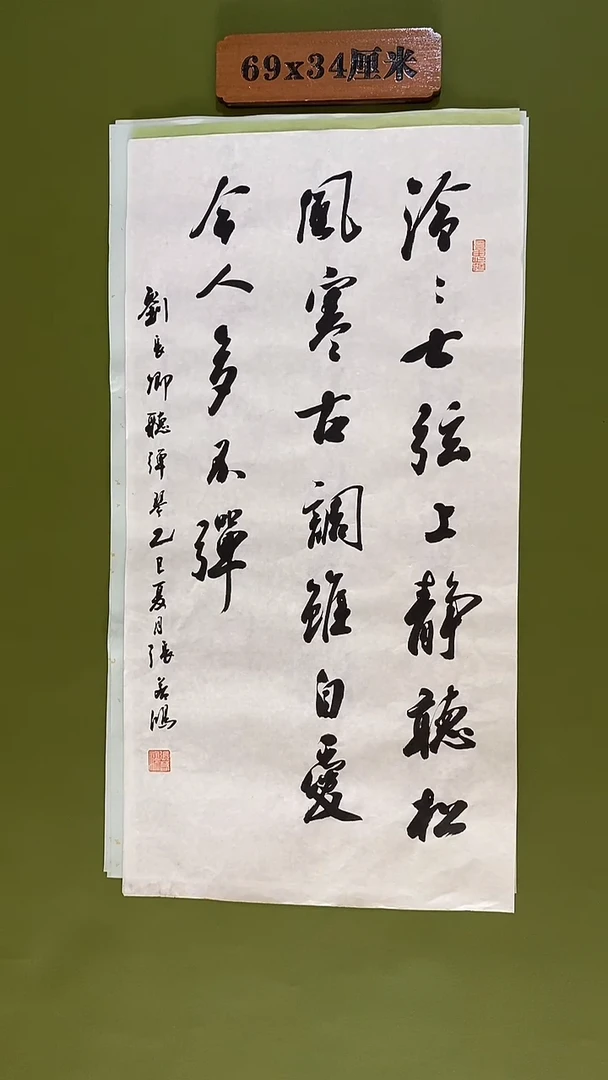 69x34厘米
泠〻七弦上静聽松
風寒古調雖自愛
今人多不彈
劉長卿聽彈琴乙巳夏月張若鴻